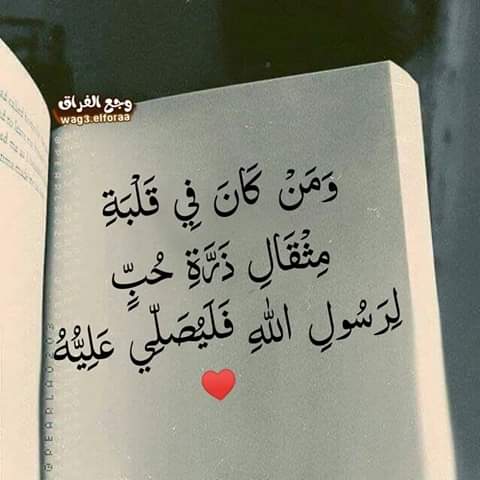 وجع الفراق
wag3.elforaa
وَمَنْ كَانَ فِي قَلْبَةِ
مِثْقَالِ ذَرَّةِ حُبٍّ
لِرَسُولِ اللهِ فَلَيُصَلِّي عَلِيُّهُ
♥